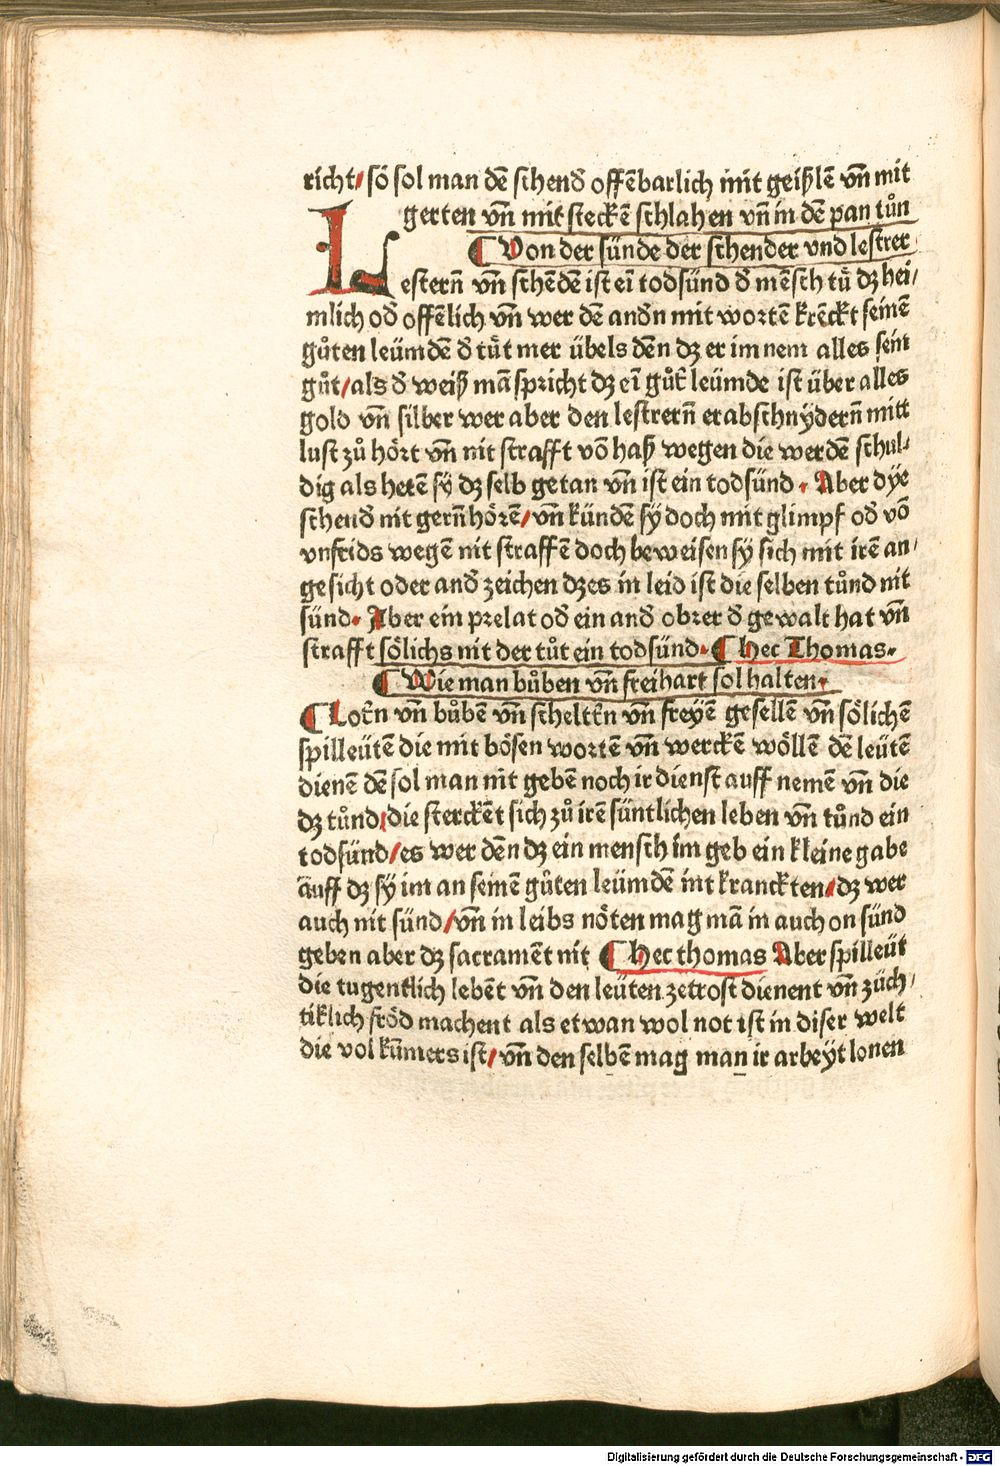 richt/ sö sol man dē schenď offēbarlich mit geißlē vn̄ mit
gerten vn̄ mit steckē schlahen vn̄ in dē pan tůn
¶ Von der sünde der schender vnd lestrer
Lestern̄ vn̄ schēdē ist ei̅ todsünd ď mēsch tůt dz hei/
mlich oď offēlich vn̄ wer dē anďn mit wortē krēckt seinē
gůten leümdē ď tůt mer übels dēn dz er im nem alles sein
gůt/ als ď weiß mā spricht dz ei̅ gůt̄ leümde ist über alles
gold vn̄ silber wer aber den lestrern̄ erabschnÿdern̄ mitt
lust zů hört vn̄ nit strafft vō haß wegen die werdē schul/
dig als hetē sÿ dz selb getan vn̄ ist ein todsünd. Aber dye
schenď nit gern̄ hörē/ vn̄ kündē sÿ doch mit glimpf oď vō
vnfrids wegē nit straffē doch beweisen sÿ sich mit irē an/
gesicht oder anď zeichen dz es in leid ist die selben tůnd nit
sünd. Aber ein prelat oď ein anď obrer ď gewalt hat vn̄
strafft sölichs nit der tůt ein todsünd. ¶ Hec Thomas.
¶ Wie man bůben vn̄ freihart sol halten.
¶ Lot̄n vn̄ bůbē vn̄ schelt̄n vn̄ freyē gesellē vn̄ sölichē
spilleütē die mit bösen wortē vn̄ werckē wöllē dē leütē
dienē dē sol man nit gebē noch ir dienst auff nemē vn̄ die
dz tůnd/ die sterckēt sich zů irē süntlichen leben vn̄ tůnd ein
todsünd/ es wer dēn dz ein mensch im geb ein kleine gabe
auff dz sÿ im an seinē gůten leümdē nit kranckten/ dz wer
auch nit sünd/ vn̄ in leibs nöten mag mā in auch on sünd
geben aber dz sacramēt nit ¶ Hec thomas Aber spilleüt
die tugentlich lebēt vn̄ den leüten zetrost dienent vn̄ züch/
tiklich fröd machent als etwan wol not ist in diser welt
die vol kūmers ist/ vn̄ den selbē mag man ir arbeÿt lonen
Digitalisierung gefördert durch die Deutsche Forschungsgemeinschaft - DFG